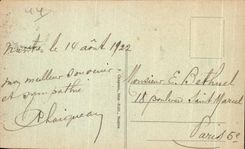 Nantes, le 14 août 1922
mon meilleur souvenir
et sympathie
Monsieur E. Bethuel
18 boulevard Saint Marcel
Paris 5e